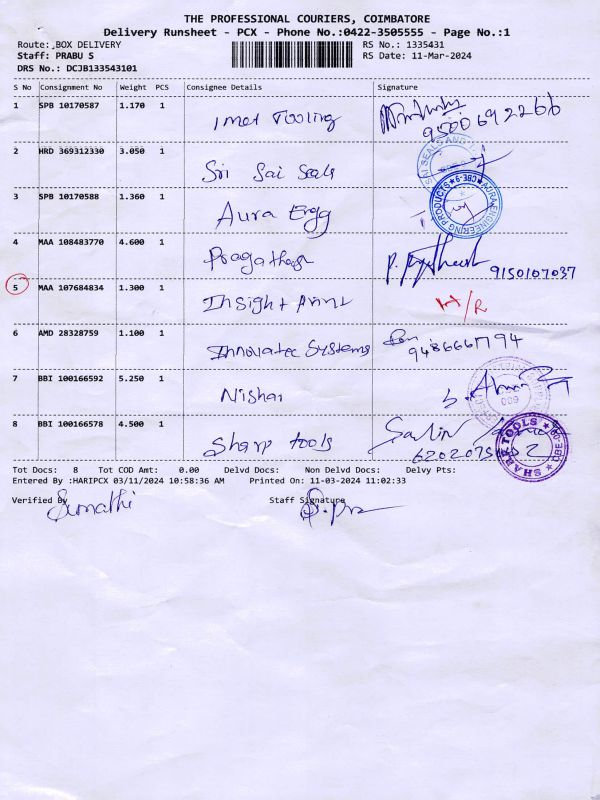 THE PROFESSIONAL COURIERS, COIMBATORE
Delivery Runsheet - PCX - Phone No.:0422-3505555 - Page No.:1
Route: BOX DELIVERY RS No.: 1335431
Staff: PRABU S RS Date: 11-Mar-2024
DRS No.: DCJB133543101
S No Consignment No Weight PCS Consignee Details Signature
1 SPB 10170587 1.170 1 Imet Tooling
9500692266
2 HRD 369312330 3.050 1 Sri Sai Seals
SAI SEALS AND
3 SPB 10170588 1.360 1 Aura Engg
AURA ENGINEERING PRODUCTS ★ CBE-9 ★
4 MAA 108483770 4.600 1 Pragathesh
9150107037
5 MAA 107684834 1.300 1 Insight print H/R
6 AMD 28328759 1.100 1 Innovatec Systems
7 BBI 100166592 5.250 1 Nishar
8 BBI 100166578 4.500 1 Sharp tools
SHARP TOOLS
Tot Docs: 8 Tot COD Amt: 0.00 Delvd Docs: Non Delvd Docs: Delvy Pts:
Entered By :HARIPCX 03/11/2024 10:58:36 AM Printed On: 11-03-2024 11:02:33
Verified By Staff Signature
Sumathi